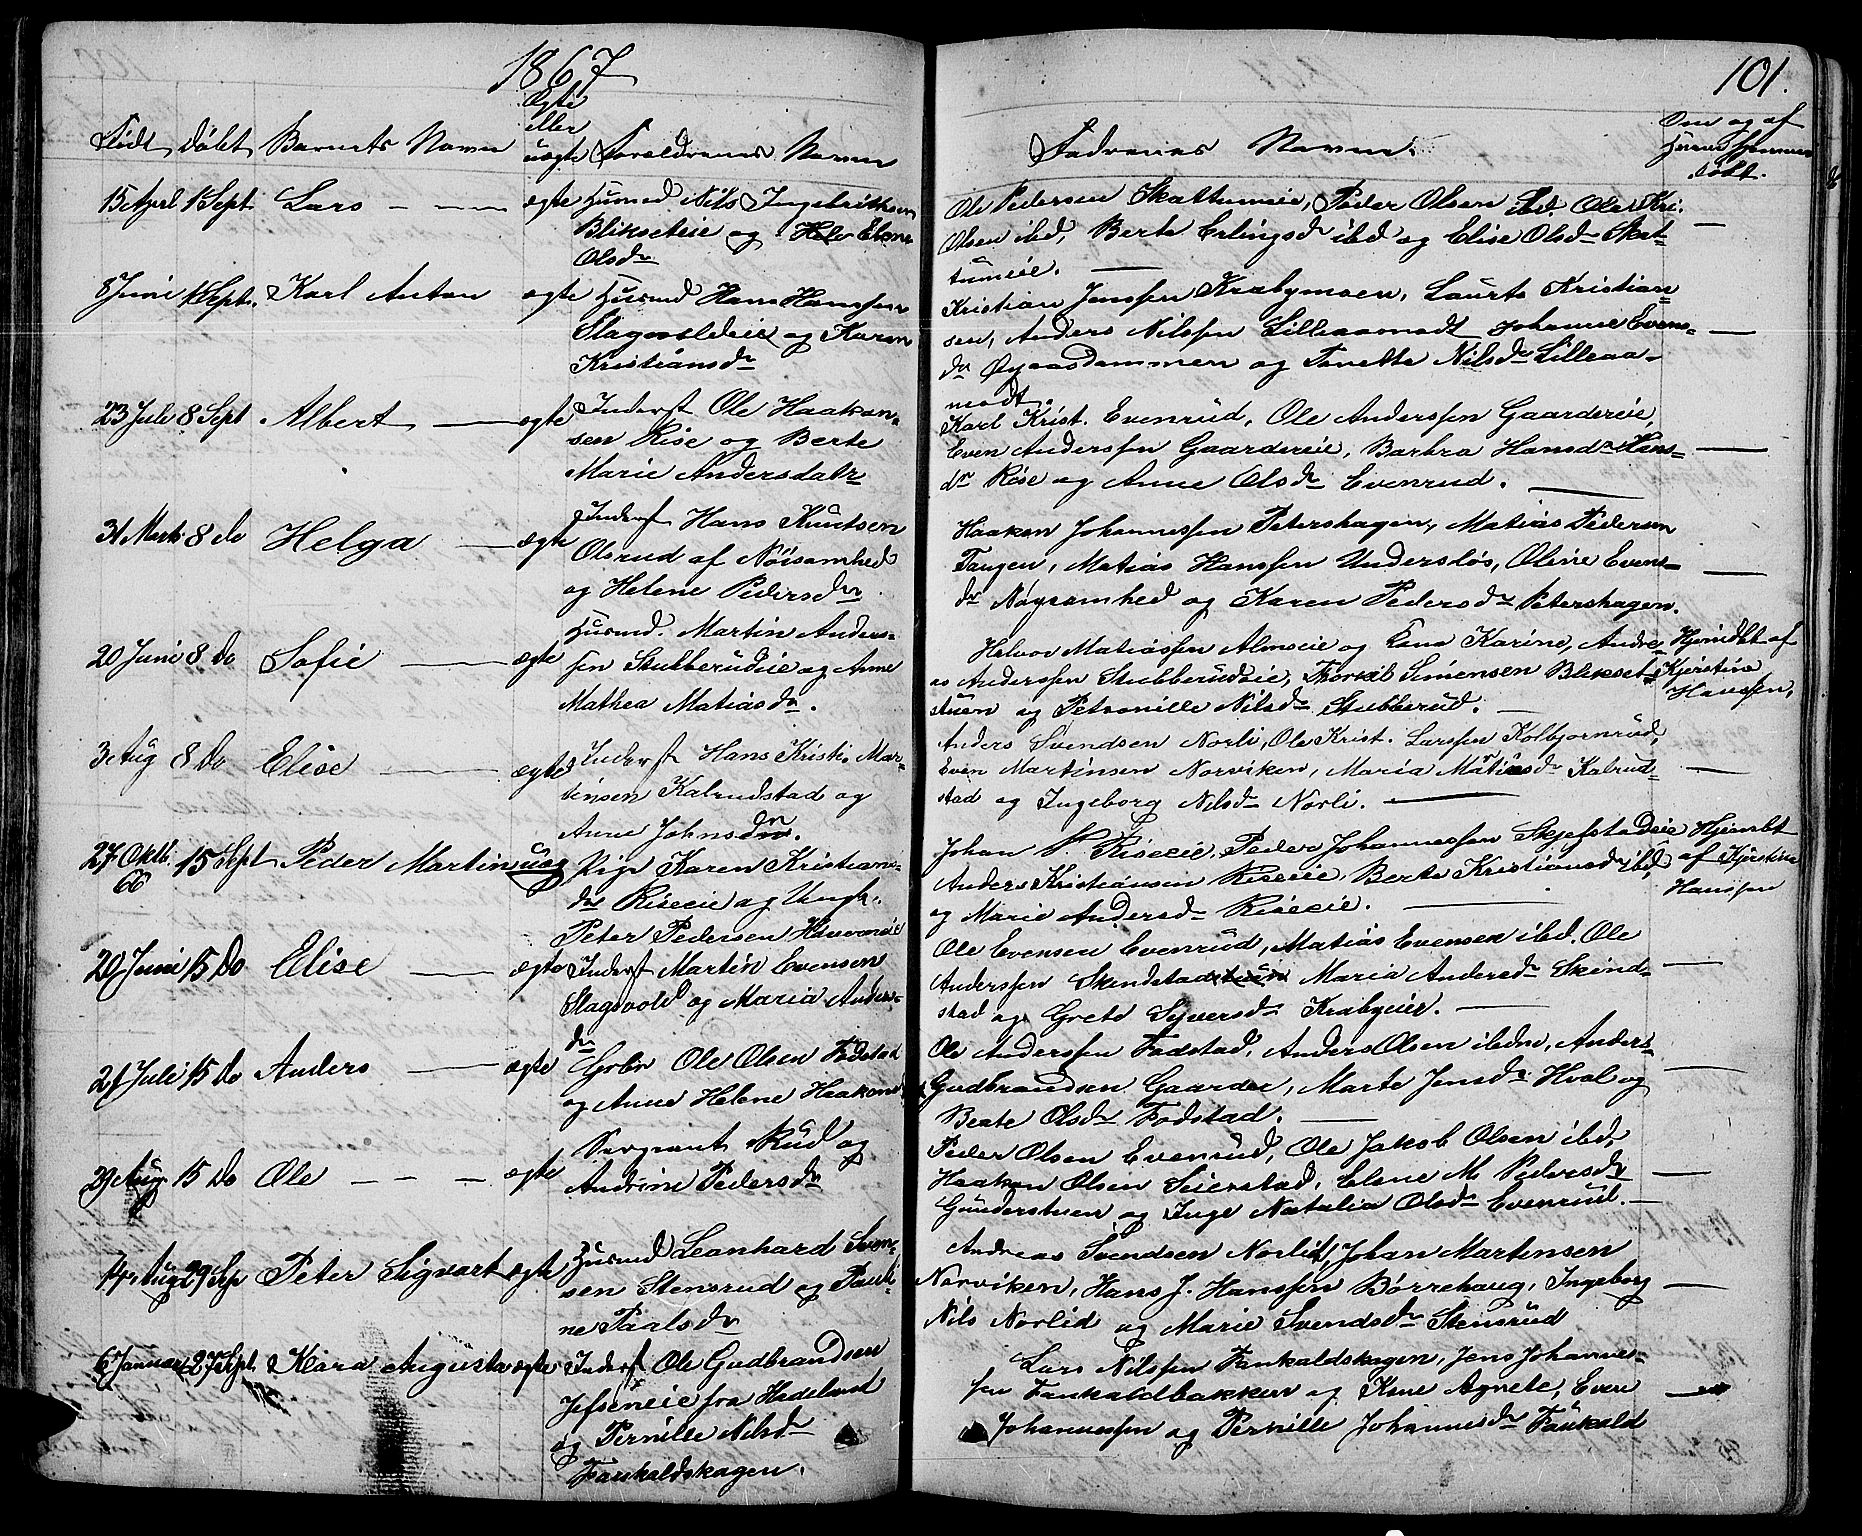 1867
101.
Født
Døbt
Barnets Navn
Ægte
eller
uægte
Foreldrenes Navn
Fadrenes Navne.
Om og af
hvem hjemme
døbt.
15 April 1 Sept Lars — ægte Husmd Nils Ingebrithsen
Blikseteie og Elene
Olsdr
Ole Pedersen Skattumeie, Peder Olsen ibd. Ole Kri.
Olsen ibd, Berte Erlingsdr ibd og Elise Olsdr Skat-
tumeie. —
8 Juni 1 Sept. Karl Anton ægte Husmd Hans Hanssen
Slagvoldeie og Karen
Kristiansdr
Kristian Jenssen Krabymoen, Laurts Kristian-
sen, Anders Nilssen Lilleaamodt Johanne Evens-
dr Øgaasdammen og Tonette Nilsdr Lilleaa-
modt.
23 Juli 8 Sept Albert — ægte Inderst Ole Haakon-
sen Rise og Berte
Marie Andersdatr
Karl Krist. Evenrud, Ole Anderssen Gaardereie,
Even Anderssen Gaardereie, Barbra Hansdr Hans-
dr Rise og Anne Olsdr Evenrud. —
31 Marts 8 do Helga — ægte Inderst Hans Knutsen
Olsrud af Nøisomhed
og Helene Pedersdr
Haaken Johannessen Petershagen, Matias Pedersen
Tangen, Matias Hanssen Undersløs, Oline Evens-
dr Nøysomhed og Karen Pedersdr Petershagen.
20 Juni 8 Do Sofie — ægte Husmd. Martin Anders-
sen Stubberudeie og Anne
Mathea Matiasdr.
Helvor Matiassen Almseie og Karine, Andre-
as Anderssen Stubberudeie, Thorvil Simensen Blikset-
stuen og Petronille Nilsdr Stubberud. —
Hjemdbt af
Kjerstina
Hanssen,
3 Aug 8 Do Elise — ægte Inderst Hans Kristi. Mar-
tinsen Kalrudstad og
Anne Johnsdr.
Anders Svendsen Norli, Ole Krist. Larssen Kolbjornrud,
Even Martinsen Norviken, Maria Matiasdr Kalrud-
stad og Ingeborg Nilsdr Norli. —
27 Oktb.
66
15 Sept Peder Martin uæg Pige Karen Kristians-
dr Riseeie og Ungk.
Peter Pedersen
Johan P Riseeie, Peder Johannessen Skjefstadeie
Anders Kristiansen Riseeie, Berte Kristiansdr ibd,
og Marie Andersdr Riseeie. —
Hjemdbt
af Kjerstina
Hanssen
20 Juni 15 Do Elise — ægte Inderst Martin Evensen
Slagsvold og Maria Anders-
dr
Ole Evensen Evenrud, Matias Evensen ibd. Ole
Anderssen Skindstad Maria Andersdr Skind-
stad og Grete Syversdr Krabyeie. —
21 Juli 15 Do Anders — ægte Gbr Ole Olsen Fodstad
og Anne Helene Haakensdr
Ole Anderssen Fodstad, Anders Olsen ibdm, Anders
Gudbrandsen Gaarder, Marte Jensdr Hval og
Beate Olsdr Fodstad. —
29 Aug. 15 Do Ole — — — ægte Sergeant Rud og
Andrine Pedersdr
Peder Olsen Evenrud, Ole Jakob Olsen ibd,
Haaken Olsen Seierstad, Elene M. Pedersdr
Gunderstuen og Inge Natalia Olsdr Evenrud. —
14 Aug 29 Sp Peter Sigvart ægte Husmd Leonhard Sven-
sen Stensrud og Pauli-
ne Paalsdr
Andreas Svendsen Norlid, Johan Martensen
Norviken, Hans J. Hanssen Børrehaug, Ingeborg
Nils Norlid og Marie Svendsdr Stensrud
6 Januar 27 Sept. Klara Augusta ægte Inderst Ole Gudbrandsen
Jefseneie fra Hadeland
og Pernille Nilsdr
Fankaldskagen.
Lars Nilssen Fankaldskagen, Jens Johannes-
sen Fankaldbakken og Kone Agnete, Even
Johannessen og Pernille Johannesdr Fankald